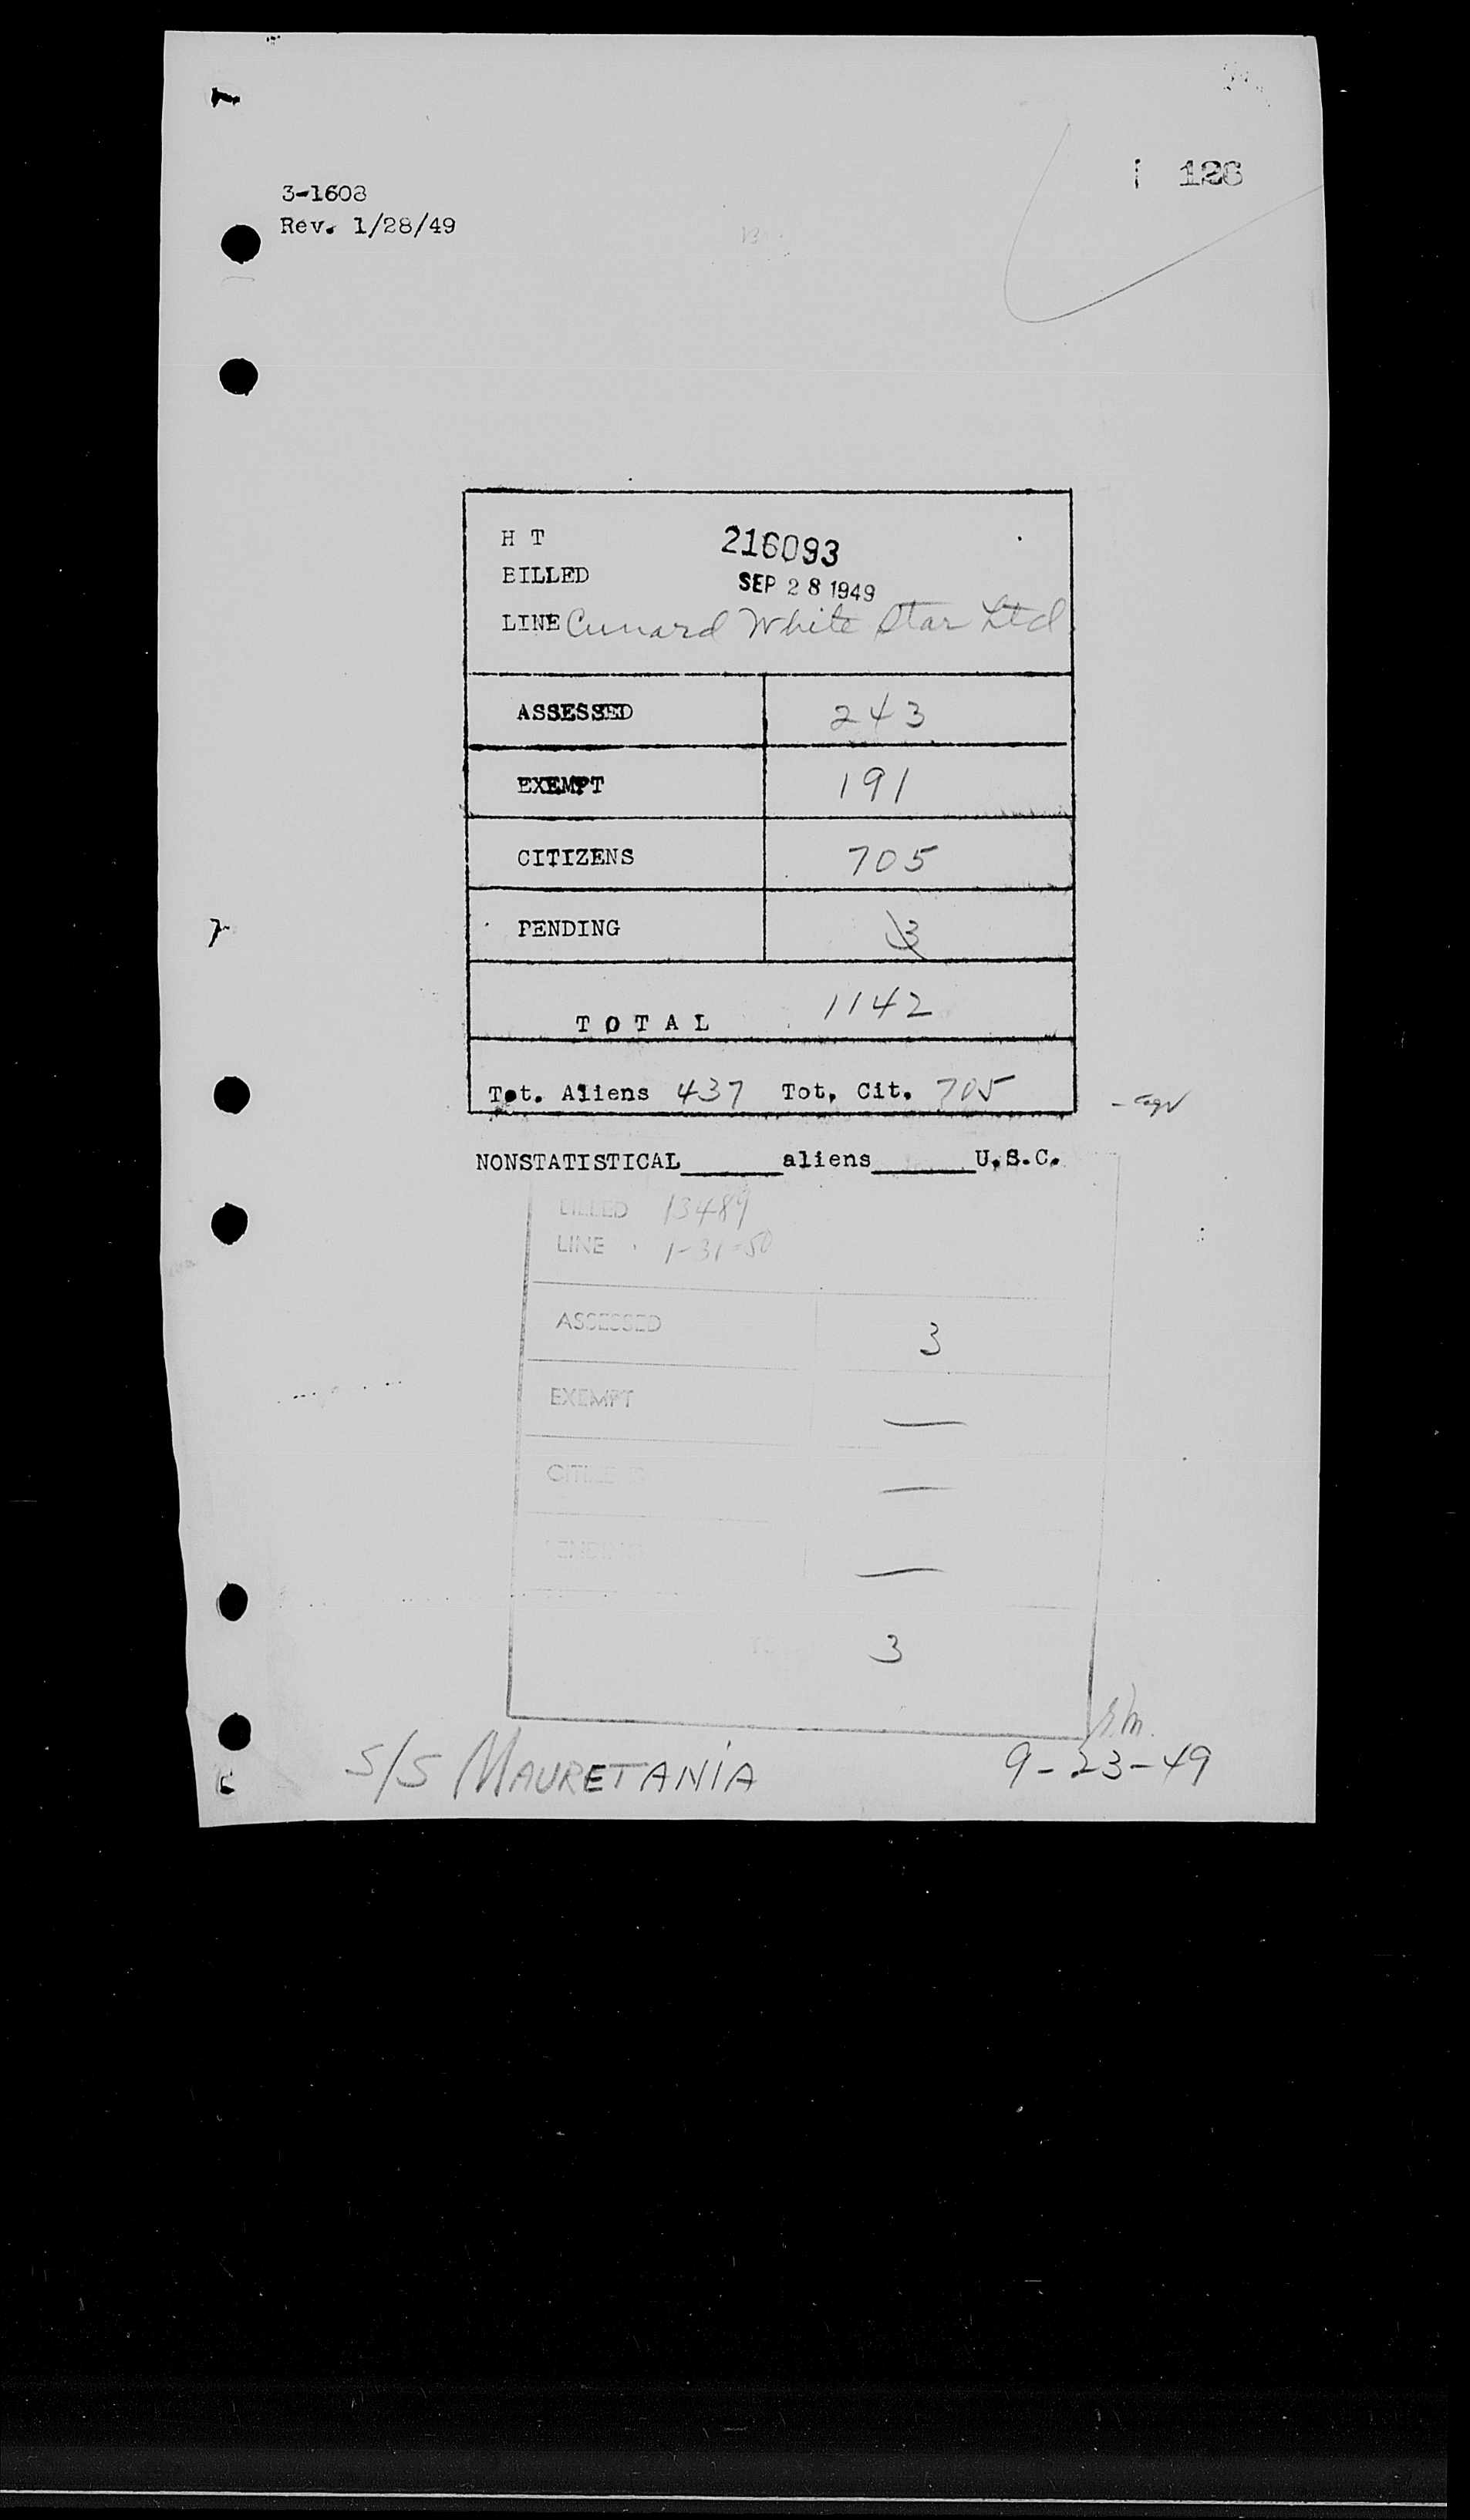 128
3-1608
Rev. 1/28/49
H T 216093
BILLED SEP 28 1949
LINE Cunard White Star Ltd
ASSESSED 243
EXEMPT 191
CITIZENS 705
PENDING 3
TOTAL 1142
Tot. Aliens 437 Tot. Cit. 705
NONSTATISTICAL______aliens______U.S.C.
BILLED 13489
LINE 1-31-50
ASSESSED 3
EXEMPT —
CITIZENS —
PENDING —
3
S/S MAURETANIA 9-23-49